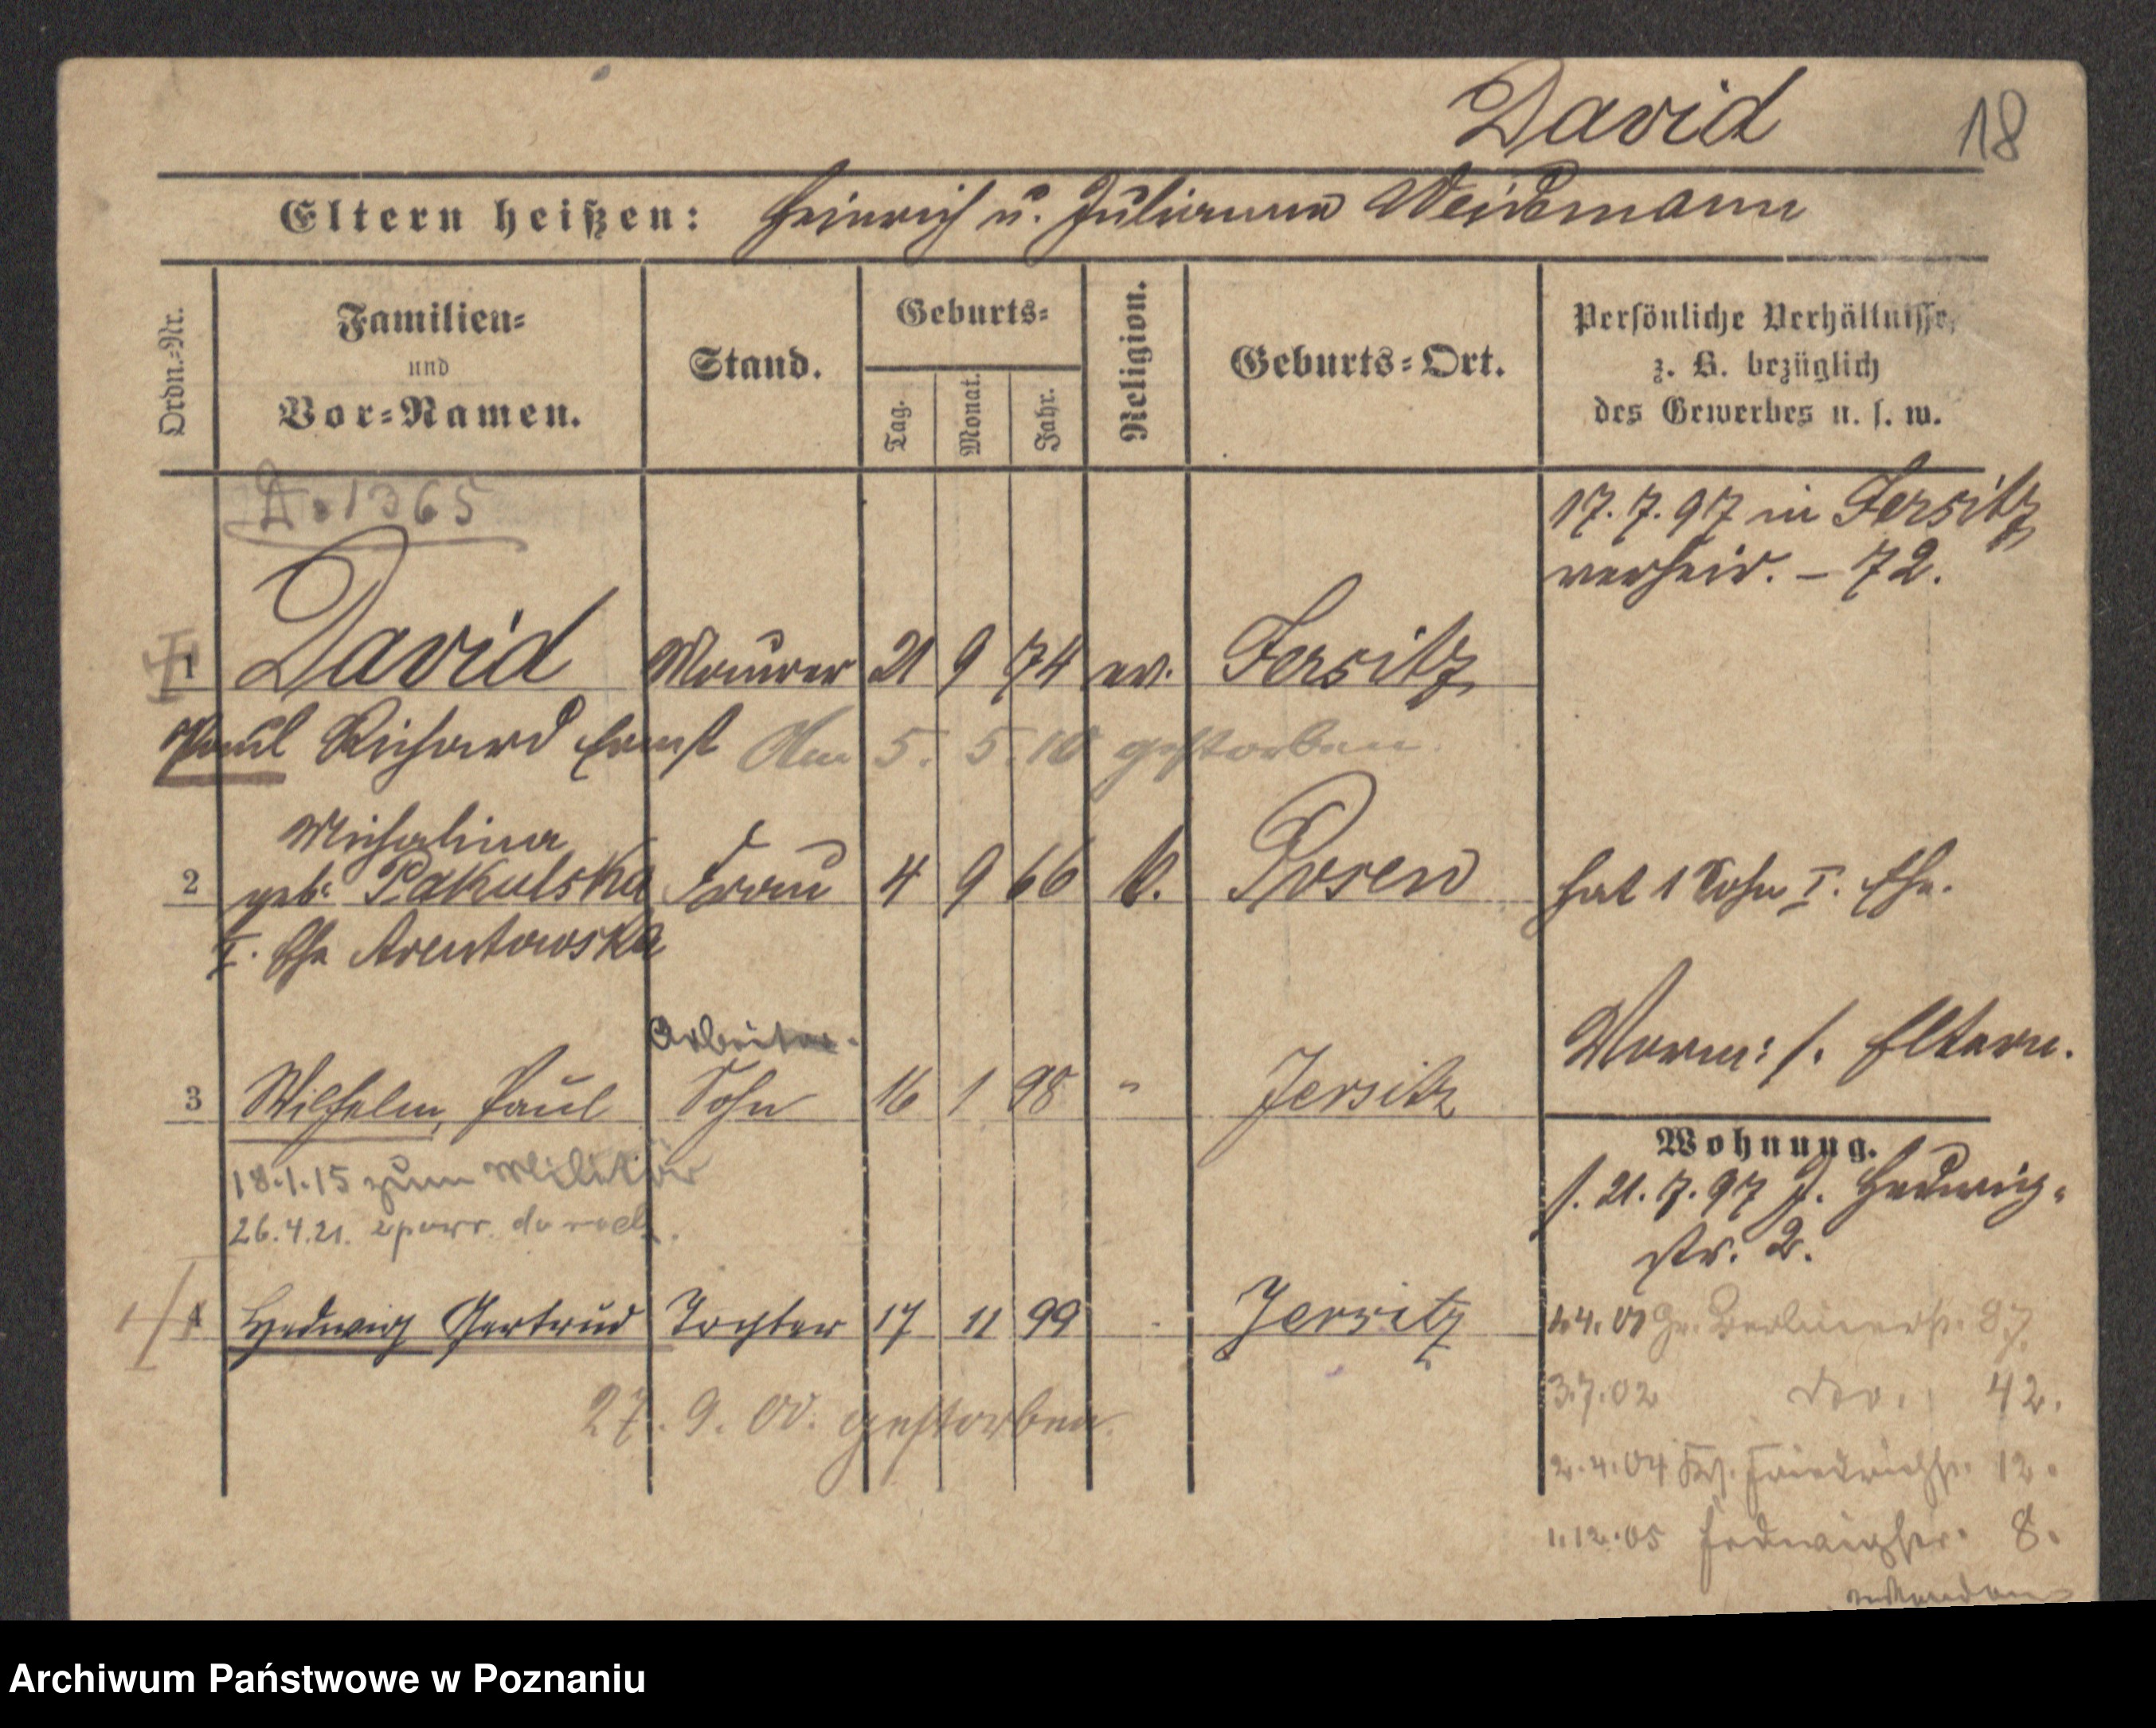 David
18
Eltern heißen: Heinrich u. Julianna Weidemann
Ordn.-Nr.
Familien-
und
Vor-Namen.
Stand.
Geburts-
Tag.
Monat.
Jahr.
Religion.
Geburts-Ort.
Persönliche Verhältnisse,
z. B. bezüglich
des Gewerbes u. s. w.
A. 1365
17.7.97 in Jersitz
verheir. – 72.
1 David Maurer 21 9 74 ev. Jersitz
Paul Richard Ernst Am 5. 5. 10 gestorben.
Michalina
2 geb. Pakulska Frau 4 9 66 k. Posen hat 1 Sohn I. Ehe.
I. Ehe Arentowska
Arbeiter.
Worm: s. Eltern.
3 Wilhelm, Paul Sohn 16 1 98 " Jersitz
18.1.15 zum Militär
26.4.21.
Wohnung.
s. 21.7.97 J. Hedwig-
str. 2.
4 Hedwig Gertrud Tochter 17 11 99 Jersitz
1.4.01 Gr. Berlinerstr. 87
27. 9. 00. gestorben.
3.7.02 do. 42.
2.4.04 Friedrichstr. 12.
1.12.05 Hedwigstr. 8.
Archiwum Państwowe w Poznaniu